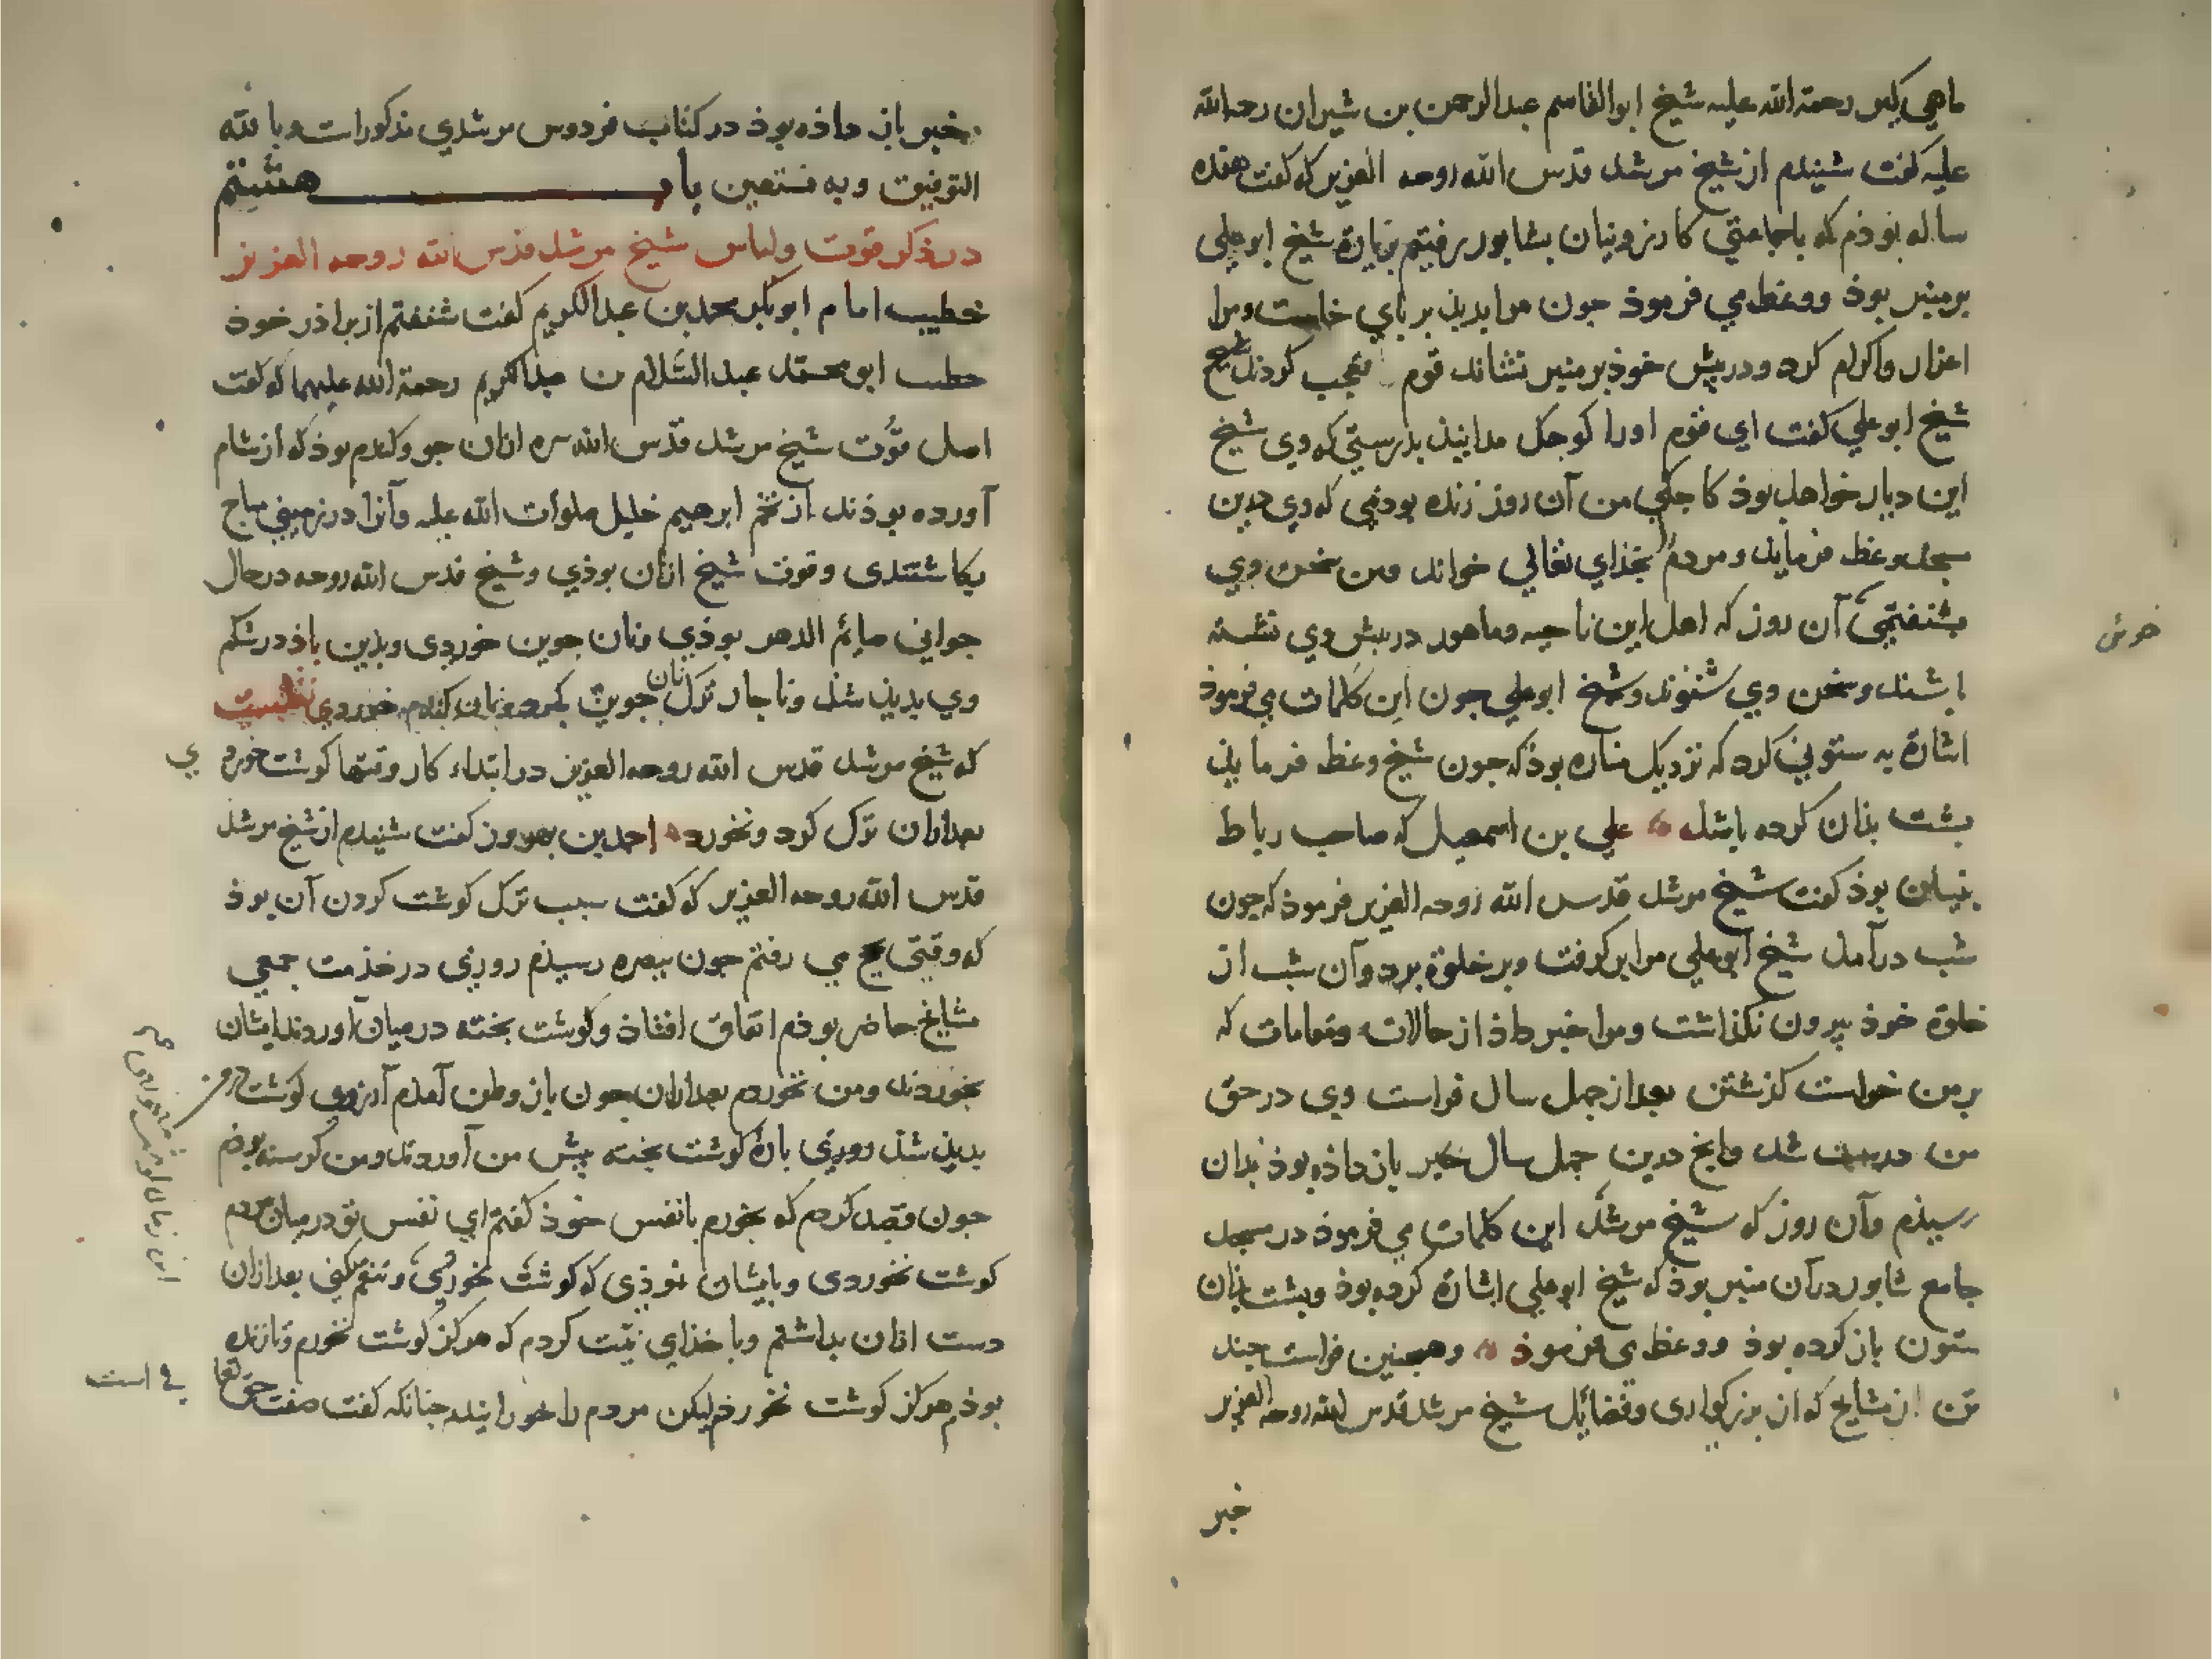 ماهی کیر رحمة الله علیه شیخ ابوالقاسم عبدالرحمن بن شیران رحمه الله
علیه کفت شنیدم از شیخ مرشد قدس الله روحه العزیز که کفت هفده
ساله بوذم که باجماعتی کازرونیان بشابور رفتیم بزیارة شیخ ابوعلی
برمنبر بوذ ووعظ می فرموذ جون مرا بدیذ بر بای خاست ومرا
اعزاز واکرام کرد ودربیش خوذ برمنبر نشاند قوم تعجب کردند شیخ
شیخ ابوعلی کفت ای قوم اورا کوجک مدانید بدرستی که وی شیخ
این دیار خواهد بوذ کاجکی من آن روز زنده بودمی که وی درین
مسجد وعظ فرماید ومردم را بخذای تعالی خواند ومن سخن وی
بشنفتمی آن روز که اهل این ناحیه وماهور دربیش وی نشسته
باشند وسخن وی شنوند وشیخ ابوعلی جون این کلمات می فرموذ
اشارة به ستونی کرد که نزدیک مناره بوذ که جون شیخ وعظ فرماید
بشت بذان کرده باشد علی بن اسمعیل که صاحب رباط
بنیان بوذ کفت شیخ مرشد قدس الله روحه العزیز فرموذ که جون
شب درآمد شیخ ابوعلی مرا برکرفت وبرخلوة برد وآن شب از
خلوة خوذ بیرون نکذاشت ومرا خبر داذ از حالات ومقامات که
برمن خواست کذشتن بعد از جهل سال فراست وی در حق
من درست شد وانج درین جهل سال خبر باز داذه بوذ بذان
رسیذم وآن روز که شیخ مرشد این کلمات می فرموذ در مسجد
جامع شابور درآن منبر بوذ که شیخ ابوعلی اشارة کرده بوذ وبشت بذان
ستون باز کرده بوذ ووعظ می فرموذ وهمجنین فراست جند
تن از مشایخ که از بزرکواری وفضائل شیخ مرشد قدس الله روحه العزیز
خبر
خوش
خبر باز داذه بوذ در کتاب فردوس مرشدی مذکورات وبالله
التوفیق وبه نستعین باب هشتم
درذکر قوت ولباس شیخ مرشد قدس الله روحه العزیز
خطیب امام ابوبکر محمد بن عبدالکریم کفت شنفتم از براذر خوذ
خطیب ابومحمد عبدالسلام بن عبدالکریم رحمة الله علیهما که کفت
اصل قوت شیخ مرشد قدس الله سره ازان جو وکندم بوذ که از شام
آورده بوذند از تخم ابرهیم خلیل صلوات الله علیه وآنرا درزمینی مباح
بکاشتندی وقوت شیخ ازان بوذی وشیخ قدس الله روحه درحال
جوانی صایم الدهر بوذی ونان جوین خوردی وبذین باذ درشکم
وی بدیذ شد وناجار ترک نان جوین کرد ونان کندم خوردی نقلست
که شیخ مرشد قدس الله روحه العزیز در ابتداء کار وقتها کوشت خورد
ی
بعدازان ترک کرد ونخورد احمد بن بهروز کفت شنیدم از شیخ مرشد
قدس الله روحه العزیز که کفت سبب ترک کوشت کردن آن بوذ
که وقتی بحج می رفتم جون ببصره رسیذم روزی درخذمت جمعی
مشایخ حاضر بوذم اتفاق افتاذ وکوشت بخته درمیان آوردند ایشان
بخوردند ومن نخوردم بعدازان جون باز وطن آمدم آرزوی کوشت در من
بدیذ شذ روزی بارة کوشت بخته بیش من آوردند ومن کرسنه بوذم
جون قصد کردم که بخورم بانفس خوذ کفتم ای نفس تو درمیان مردم
کوشت نخوردی وبایشان نموذی که کوشت نخوری وتنعم نکنی بعدازان
دست ازان بداشتم وبا خذای نیت کردم که هرکز کوشت نخورم تا زنده
بوذم هرکز کوشت نخوردم لیکن مردم را خورانیدم جنانکه کفت صفت حق تعا
است